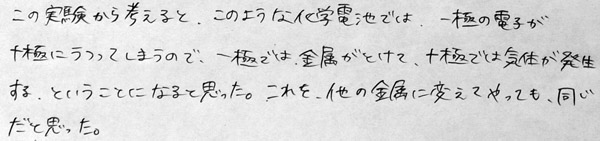 この実験から考えると、このような化学電池では、一極の電子が
十極にうつってしまうので、一極では、金属がとけて、十極では気体が発生
する、ということになると思った。これを、他の金属に変えてやっても、同じ
だと思った。